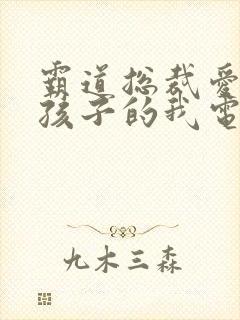 霸道总裁爱
孩子的我电
九木三森